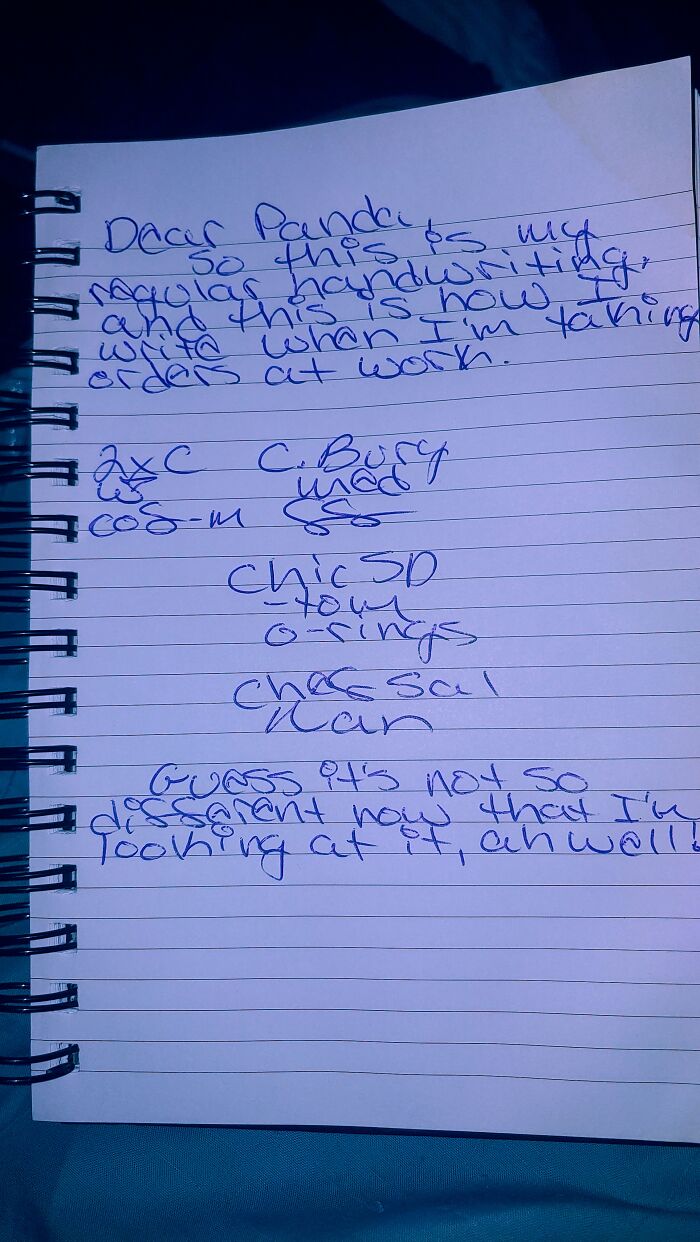 Dear Panda,
so this is my
regular handwriting,
and this is how I
write when I'm taking
orders at work.
2xC C. Burg
med
cof-m
Chic SD
-tom
o-rings
chef sal
ran
Guess it's not so
different now that I'm
looking at it, ah well!